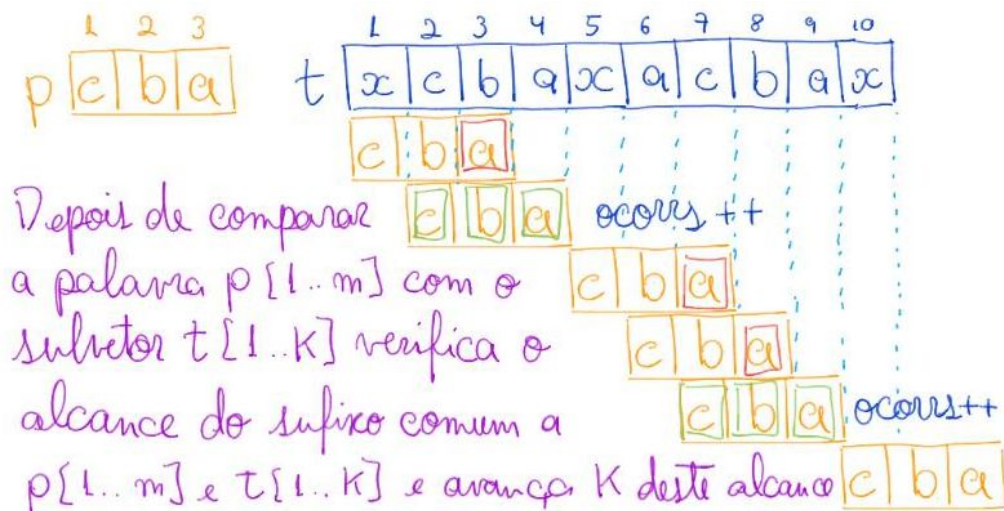 1 2 3 1 2 3 4 5 6 7 8 9 10
p c b a t x c b a x a c b a x
c b a
Depois de comparar c b a ocorrs ++
a palavra p[1..m] com o c b a
subvetor t[1..K] verifica o c b a
alcance do sufixo comum a c b a ocorrs++
p[1..m] e t[1..K] e avança K deste alcance c b a